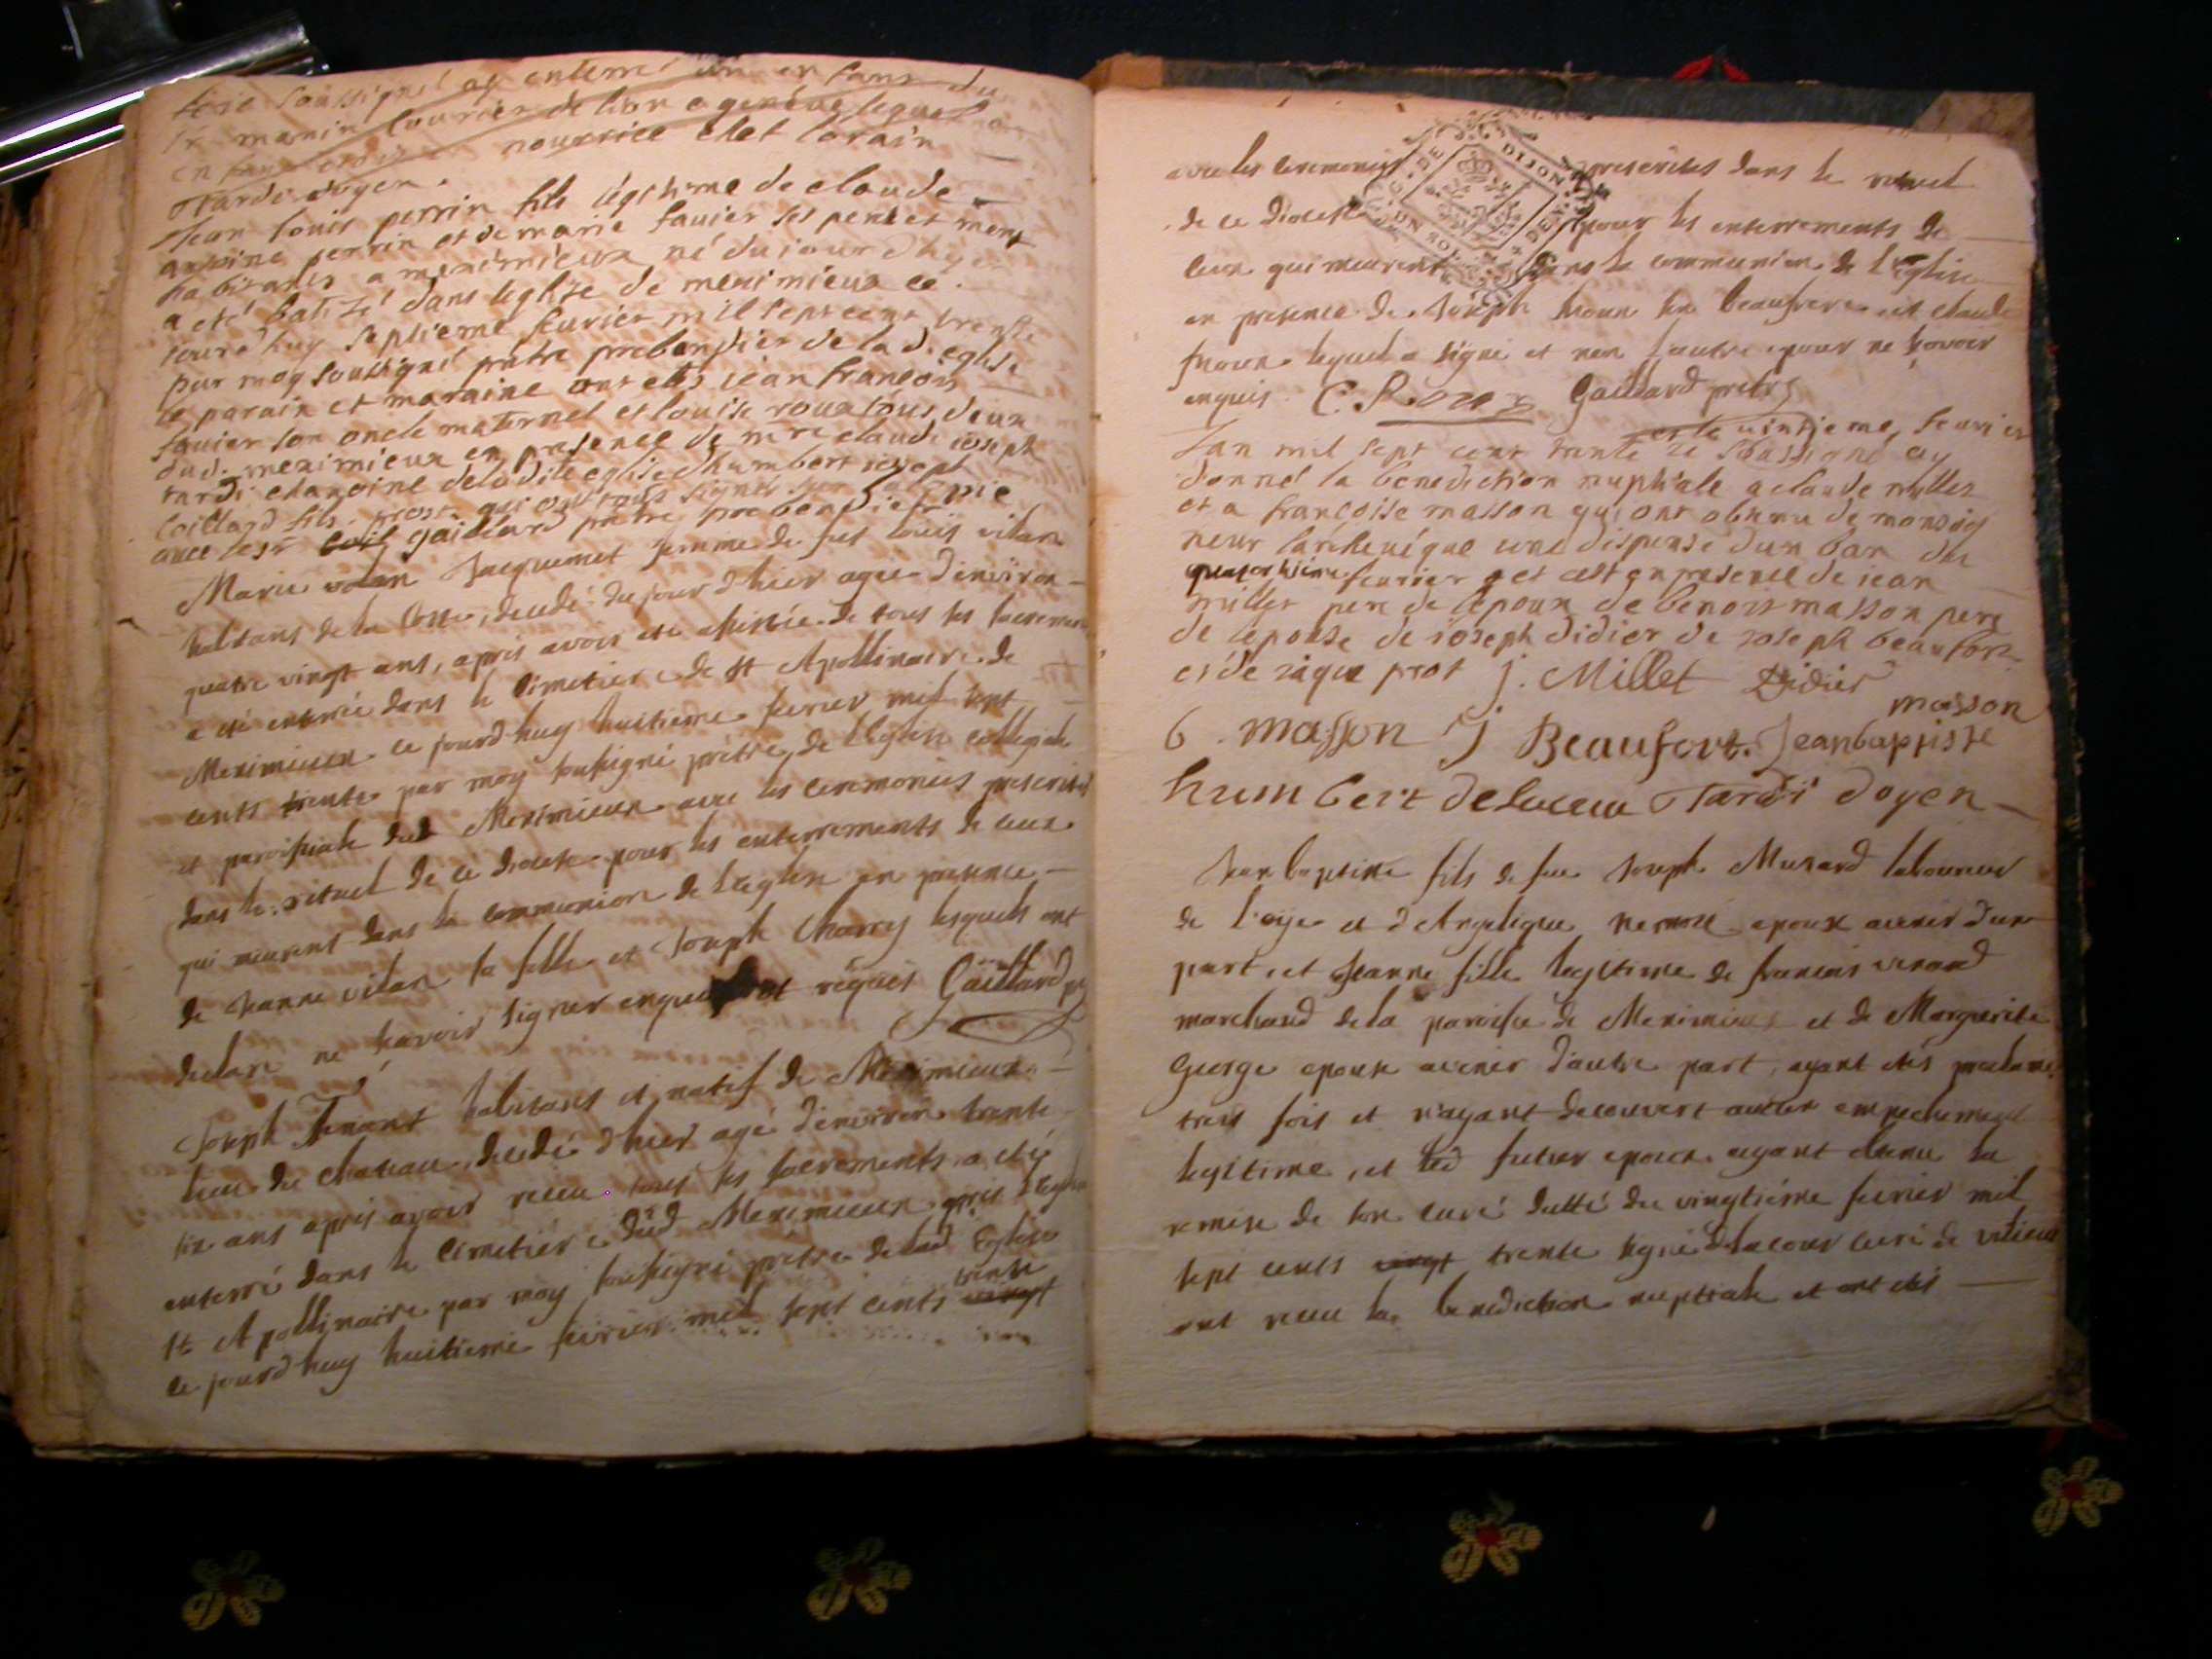 soussigné ay enterré un enfans du
Sr manin courier de lion a genéve lequel
en nourrice chet lorain
Tardi doyen.
Jean louis perrin fils légitime de claude
antoine perrin et de marie fauier ses pere et mere
habitants a meximieux né du jour d'hyer
a eté batizé dans leglize de meximieux ce
iourd'huy septieme feurier mil sept cent trente
par moy soussigné prêtre prebendier de lad. eglise
le parain et maraine ont etés iean francois
fauier son oncle maternel et louise roux tous deux
dud. meximieux en presence de mre claude ioseph
tardi chanoine de ladite eglise d'humbert ioseph
Coillard fils
auec lesr gaillard prêtre prebendier
Marie Jacquemet femme de fut louïs vilan
habitans de la Coste, decedé du jour d'hier agée d'environ
quatre vingt ans, apris avoir eté assistée de tous les sacrements
a eté enterrée dans le cimetiere de st Apollinaire de
Meximieux ce jourd'huy huitieme fevrier mil sept
cents trente par moy soussigné prêtre de l'Eglise collegiale
et paroissiale dud Meximieux avec les ceremonies prescrites
dans le rituel de ce diocese pour les enterrements de ceux
qui meurent dans la communion de l'Eglise en presence
de Jeanne vilan sa fille et Joseph Charry lesquels ont
declaré ne sçavoir signer enquis et réquis Gaillard p
Joseph habitans et natif de Meximieux
lieu du chateau, decedé d'hier agé d'environ trente
six ans apris avoir receu tous les sacrements a eté
enterré dans le cimetiere dud Meximieux
St Apollinaire par moy soussigné prêtre de lad Eglise
trente
ce jourd'huy huitieme fevrier mil sept cents vingt
avec les ceremonies prescrites dans le rituel
de ce diocese pour les enterrements de
ceux qui meurent dans la communion de l'Eglise
en presence de Joseph son beaufrere et claude
lequel a signé et non l'autre pour ne sçavoir
enquis. Gaillard prêtre
et le uintieme, feurier
Lan mil sept cent trente ie soussigné ay
donné la benediction nuptiale a claude millet
et a francoise masson qui ont obtenu de monseig
neur larcheuéque une dispense dun ban du
quatorzieme feurier et cest en presence de iean
millet pere de lepoux de benoit masson pere
de lepouse de ioseph didier de ioseph beaufort
J. Millet Didier
masson
6. masson J Beaufort. Jeanbaptiste
humbert Tardi doyen
Jean baptiste fils de feu Joseph Munard laboureur
de l'oye et d'Angelique epoux avenir d'une
part, et Jeanne fille legitime de francois
marchand de la paroisse de Meximieux et de Marguerite
George epouse avenir d'autre part, ayant etés proclamé
trois fois et n'ayant decouvert aucun empechement
legitime, et led futur epoux ayant obtenu la
remise de son curé datté du vingtième fevrier mil
sept cents vingt trente signé Delacour curé de vilieux
ont receu la benediction nuptiale et ont etés